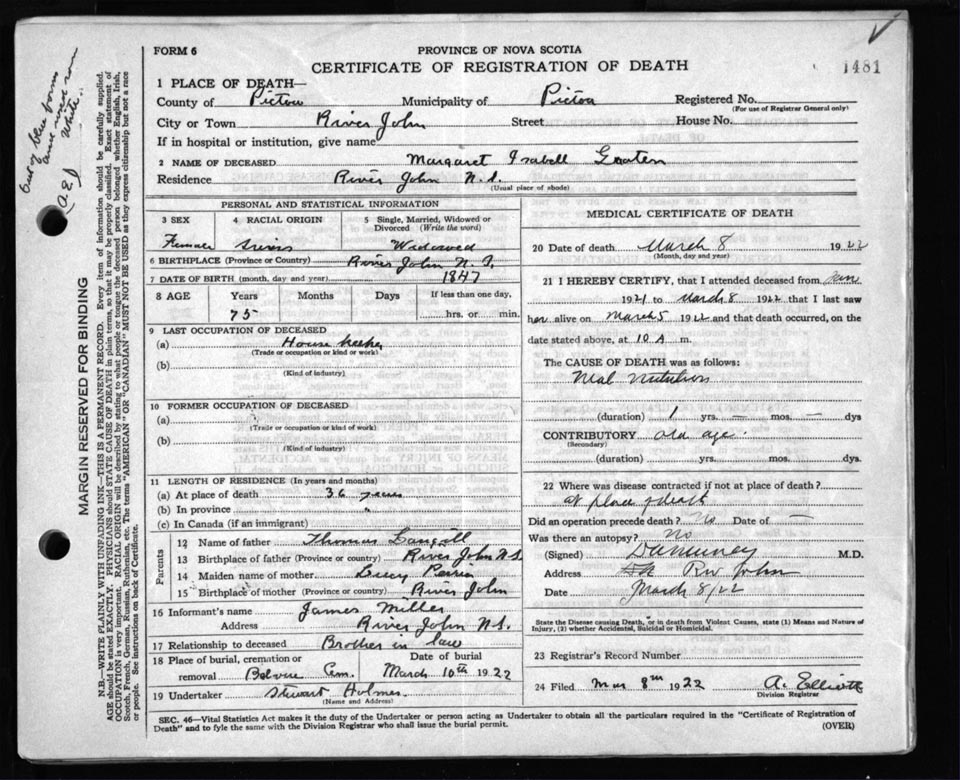 FORM 6
PROVINCE OF NOVA SCOTIA
CERTIFICATE OF REGISTRATION OF DEATH
1481
1 PLACE OF DEATH—
County of Pictou Municipality of Pictou Registered No.
(For use of Registrar General only)
City or Town River John Street House No.
If in hospital or institution, give name
2 NAME OF DECEASED Margaret Isabell
Residence River John N.S.
(Usual place of abode)
PERSONAL AND STATISTICAL INFORMATION
3 SEX 4 RACIAL ORIGIN 5 Single, Married, Widowed or Divorced (Write the word)
Female Swiss Widowed
6 BIRTHPLACE (Province or Country) River John N.S.
7 DATE OF BIRTH (month, day and year) 1847
8 AGE Years Months Days If less than one day,
75 hrs. or min.
9 LAST OCCUPATION OF DECEASED
(a) House keeper
(Trade or occupation or kind of work)
(b)
(Kind of industry)
10 FORMER OCCUPATION OF DECEASED
(a)
(Trade or occupation or kind of work)
(b)
(Kind of Industry)
11 LENGTH OF RESIDENCE (In years and months)
(a) At place of death 36 years
(b) In province "
(c) In Canada (if an immigrant)
Parents
12 Name of father Thomas Langill
13 Birthplace of father (Province or country) River John N.S.
14 Maiden name of mother Lucy
15 Birthplace of mother (Province or country) River John
16 Informant's name James Miller
Address River John N.S.
17 Relationship to deceased Brother in law
18 Place of burial, cremation or removal Date of burial
Cem. March 10th 1922
19 Undertaker Stewart Holmes
(Name and Address)
MEDICAL CERTIFICATE OF DEATH
20 Date of death March 8 1922
(Month, day and year)
21 I HEREBY CERTIFY, that I attended deceased from Jan
1921 to March 8 1922 that I last saw
her alive on March 5 1922 and that death occurred, on the
date stated above, at 10 A m.
The CAUSE OF DEATH was as follows:
Mal nutrition
(duration) 1 yrs. — mos. — dys
CONTRIBUTORY old age
(Secondary)
(duration) yrs. mos. dys.
22 Where was disease contracted if not at place of death?
at place of death
Did an operation precede death? No Date of —
Was there an autopsy? No
(Signed) M.D.
Address Riv John
Date March 8/22
State the Disease causing Death, or in death from Violent Causes, state (1) Means and Nature of
Injury, (2) whether Accidental, Suicidal or Homicidal.
23 Registrar's Record Number
24 Filed Mar 8th 1922 A. Elliott
Division Registrar
SEC. 46—Vital Statistics Act makes it the duty of the Undertaker or person acting as Undertaker to obtain all the particulars required in the "Certificate of Registration of
Death" and to fyle the same with the Division Registrar who shall issue the burial permit.
(OVER)
MARGIN RESERVED FOR BINDING
N.B.—WRITE PLAINLY WITH UNFADING INK—THIS IS A PERMANENT RECORD. Every item of information should be carefully supplied.
AGE should be stated EXACTLY. PHYSICIANS should STATE CAUSE OF DEATH in plain terms, so that it may be properly classified. Exact statement of
OCCUPATION is very important. RACIAL ORIGIN will be described by stating to what people or tongue the deceased person belonged whether English, Irish,
Scotch, French, German, Russian, Ruthenian, etc. The terms "AMERICAN" or "CANADIAN" MUST NOT BE USED as they express citizenship but not a race
or people. See instructions on back of Certificate.
Out of blue forms
and must use
White.
(A E)